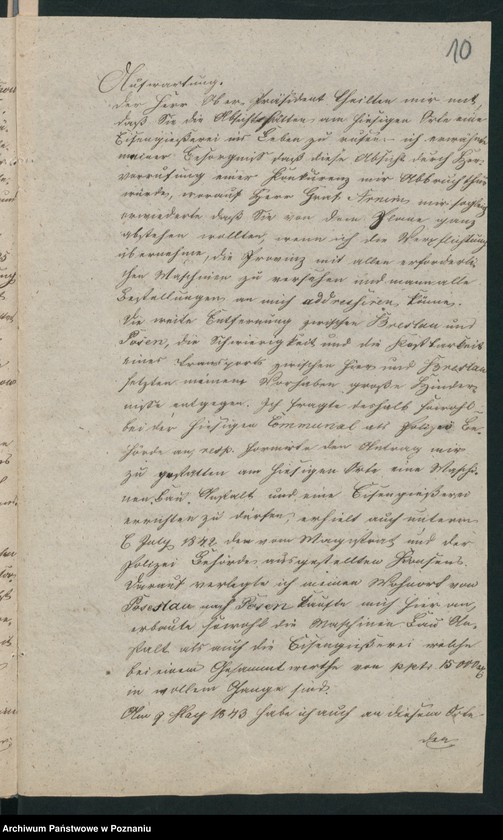 10
Aufwartung.
Der Herr Ober-Präsident theilten mir mit,
daß Sie die Absicht hätten, am hiesigen Orte eine
Eisengießerei ins Leben zu rufen, ich
meiner Besorgniß daß diese Absicht durch Her-
vorrufung einer Konkurenz mir Abbruch thun
würde, worauf Herr Graf Arnim mir sogleich
erwiederte daß Sie von dem Plane ganz
abstehen wollten, wenn ich die Verpflichtung
übernehme, die Provinz mit allen erforderli-
chen Maschinen zu versehen und man alle
Bestellungen an mich addressiren könne.
Die weite Entfernung zwischen Breslau und
Posen, die Schwierigkeit und die Kostbarkeit
eines Transports zwischen hier und Breslau
setzten meinem Vorhaben große Hinder-
nisse entgegen. Ich fragte deshalb sowohl
bei der hiesigen Communal als Polizei Be-
hörde an, resp. formirte den Antrag mir
zu gestatten am hiesigen Orte eine Maschi-
nen-Bau-Anstalt und eine Eisengießerei
errichten zu dürfen, erhielt auch unterm
6 July 1842 den vom Magistrat und der
Polizei Behörde ausgestellten Konsens.
Darauf verlegte ich meinen Wohnort von
Breslau nach Posen kaufte mich hier an,
erbaute sowohl die Maschinen Bau An-
stalt als auch die Eisengießerei welche
bei einem Gesammtwerthe von pptr. 15
in vollem Gange sind.
Am 9 May 1843 habe ich auch an diesem Orte
den
Archiwum Państwowe w Poznaniu